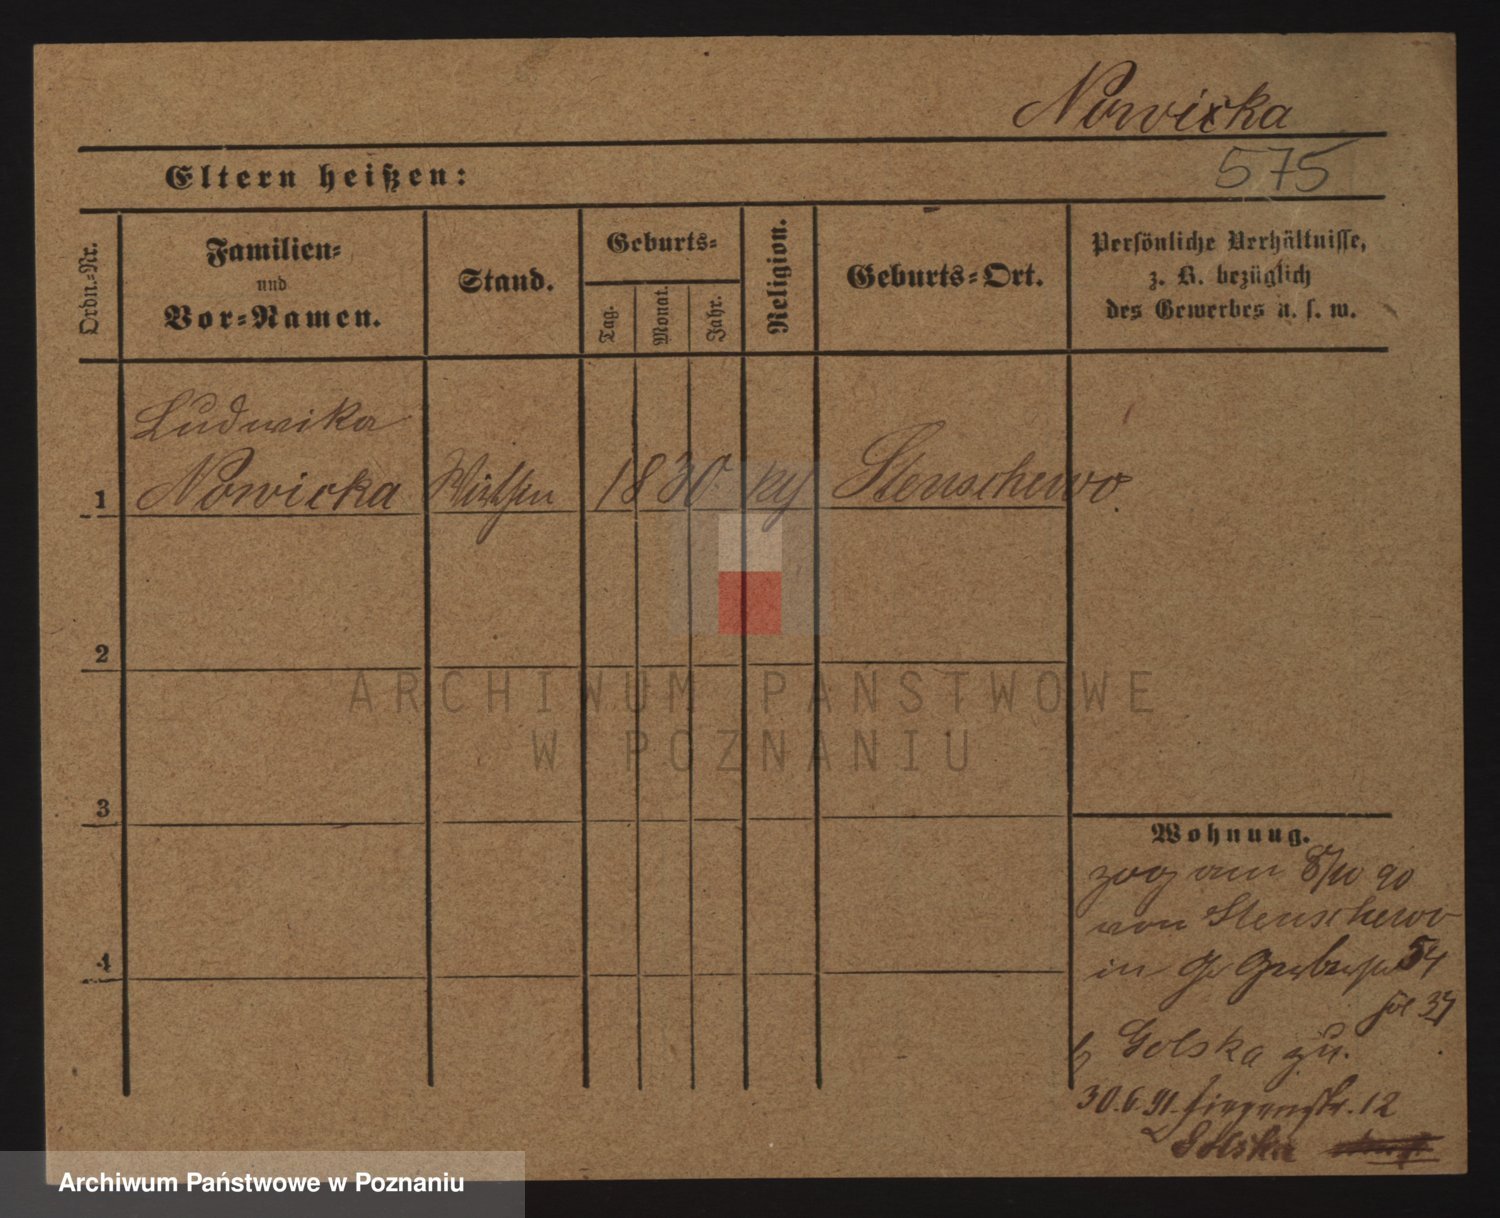 Nowicka
Eltern heißen:
575
Ordn.-Nr.
Familien-
und
Vor-Namen.
Stand.
Geburts-
Tag.
Monat.
Jahr.
Religion.
Geburts-Ort.
Persönliche Verhältnisse,
z. B. bezüglich
des Gewerbes u. s. w.
Ludwika
1 Nowicka 1830 Stenschewo
2
3
4
Wohnung.
zog am 8/10 90
von Stenschewo
in Gr Gerberstr 54
b Golska zu.
30.6.91. 12
Golska
ARCHIWUM PAŃSTWOWE
W POZNANIU
Archiwum Państwowe w Poznaniu